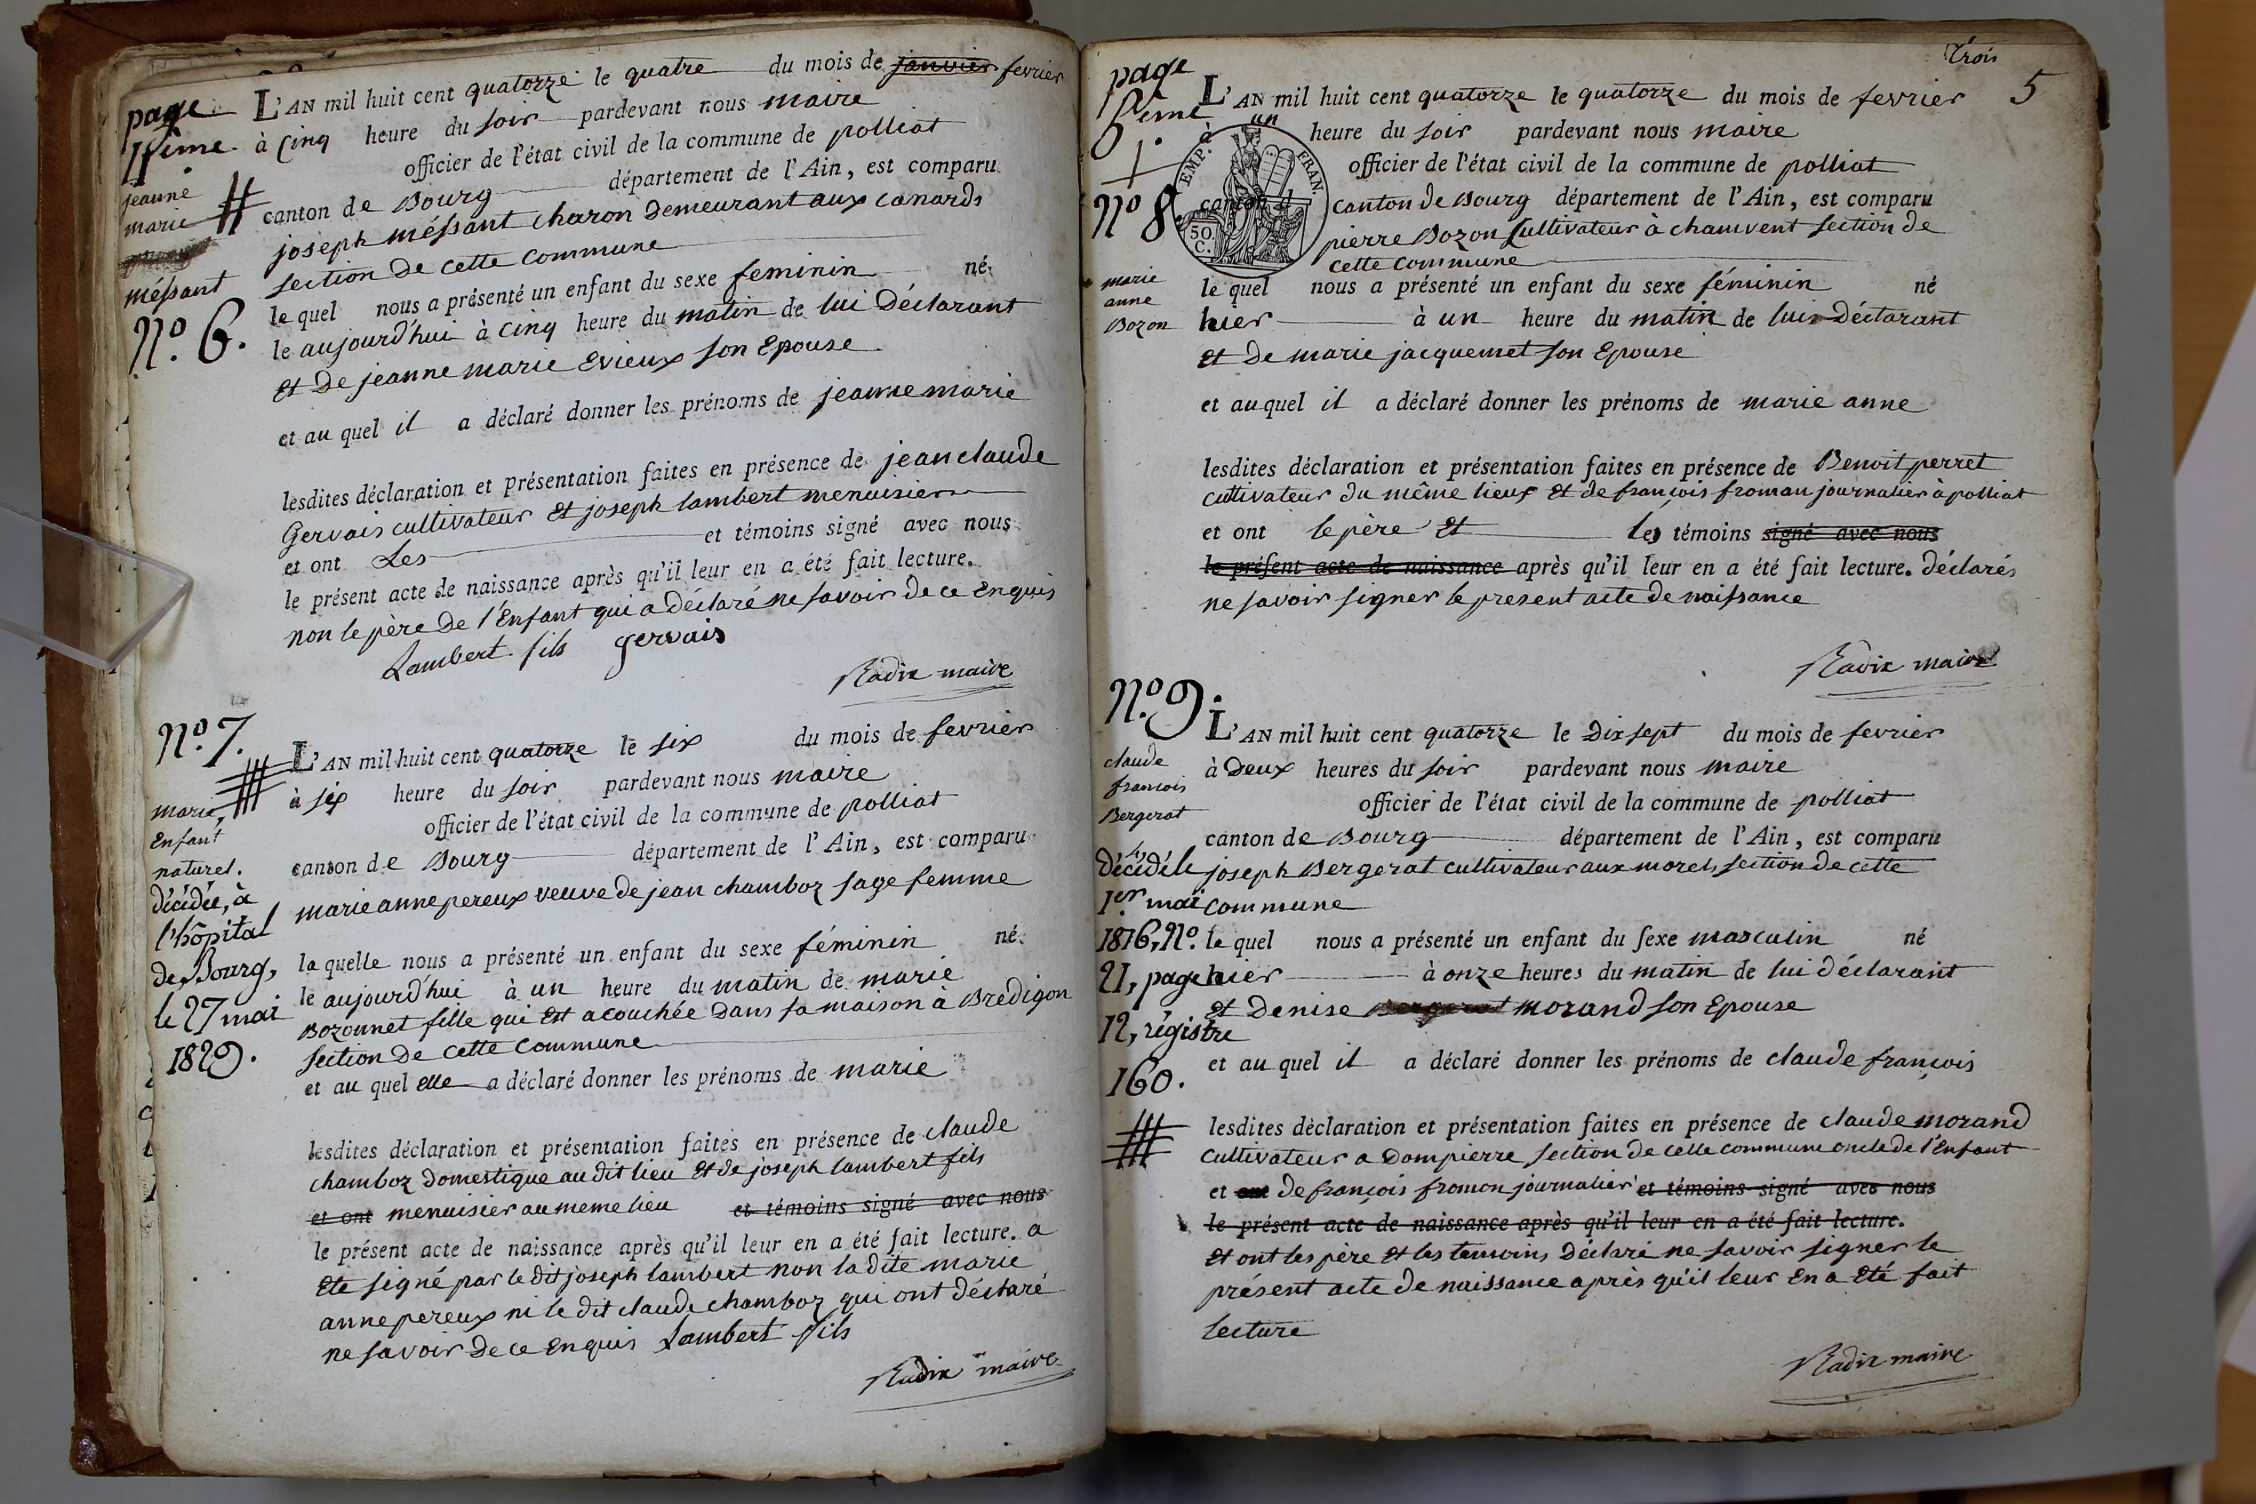 page
4eme.
jeanne
marie
méssant
N.º 6.
L'AN mil huit cent quatorze le quatre du mois de janvier fevrier
à cinq heure du soir pardevant nous maire
officier de l'état civil de la commune de polliat
canton de Bourg département de l'Ain, est comparu
joseph méssant charon demeurant aux canards
section de cette commune
le quel nous a présenté un enfant du sexe feminin né
le aujourd'hui à cinq heure du matin de lui déclarant
et de jeanne marie Evieux son Epouse
et au quel il a déclaré donner les prénoms de jeanne marie
lesdites déclaration et présentation faites en présence de jean claude
Gervais cultivateur et joseph lambert menuisier
et ont Les et témoins signé avec nous
le présent acte de naissance après qu'il leur en a été fait lecture.
non le père de l'Enfant qui a déclaré ne savoir de ce Enquis
Lambert fils gervais
Radix maire
N.º 7.
marie,
Enfant
naturel.
décédée, à
l'hôpital
de Bourg,
le 27 mai
1829.
L'AN mil huit cent quatorze le six du mois de fevrier
à six heure du soir pardevant nous maire
officier de l'état civil de la commune de polliat
canton de Bourg département de l'Ain, est comparu
marie anne pereux veuve de jean chamboz sage femme
la quelle nous a présenté un enfant du sexe féminin né
le aujourd'hui à un heure du matin de marie
Bozonnet fille qui est acouchée dans sa maison à Bredigon
section de cette commune
et au quel elle a déclaré donner les prénoms de marie
lesdites déclaration et présentation faites en présence de claude
chamboz domestique au dit lieu et de joseph lambert fils
et ont menuisier au meme lieu et témoins signé avec nous
le présent acte de naissance après qu'il leur en a été fait lecture. a
Eté signé par le dit joseph lambert non la dite marie
anne pereux ni le dit claude chamboz qui ont déclaré
ne savoir de ce enquis Lambert fils
Radix maire
Trois
5
page
5eme
N.º 8.
marie
anne
Bozon
EMP. FRAN.
50
C.
L'AN mil huit cent quatorze le quatorze du mois de fevrier
à un heure du soir pardevant nous maire
officier de l'état civil de la commune de polliat
canton d canton de Bourg département de l'Ain, est comparu
pierre Bozon Cultivateur à chamvent section de
cette commune
le quel nous a présenté un enfant du sexe féminin né
hier à un heure du matin de lui Déclarant
et de marie jacquemet son Epouse
et au quel il a déclaré donner les prénoms de marie anne
lesdites déclaration et présentation faites en présence de Benoit perret
cultivateur du même lieux et de françois froman journalier à polliat
et ont le père et les témoins signé avec nous
le présent acte de naissance après qu'il leur en a été fait lecture. déclarés
ne savoir signer le present acte de naissance
Radix maire
N.º 9.
claude
francois
Bergerat
décédé le
1er mai
1816, N.º
21, page
12, régistre
160.
L'AN mil huit cent quatorze le Dix sept du mois de fevrier
à Deux heures du soir pardevant nous maire
officier de l'état civil de la commune de polliat
canton de Bourg département de l'Ain, est comparu
joseph Bergerat cultivateur aux morels section de cette
commune
le quel nous a présenté un enfant du sexe masculin né
hier à onze heures du matin de lui déclarant
et Denise morand son Epouse
et au quel il a déclaré donner les prénoms de claude françois
lesdites déclaration et présentation faites en présence de claude morand
cultivateur a Dompierre section de cette commune oncle de l'Enfant
et ont de françois fromon journalier et témoins signé avec nous
le présent acte de naissance après qu'il leur en a été fait lecture.
et ont les père et les temoins Déclaré ne savoir signer le
présent acte de naissance après qu'il leur en a Eté fait
lecture
Radix maire